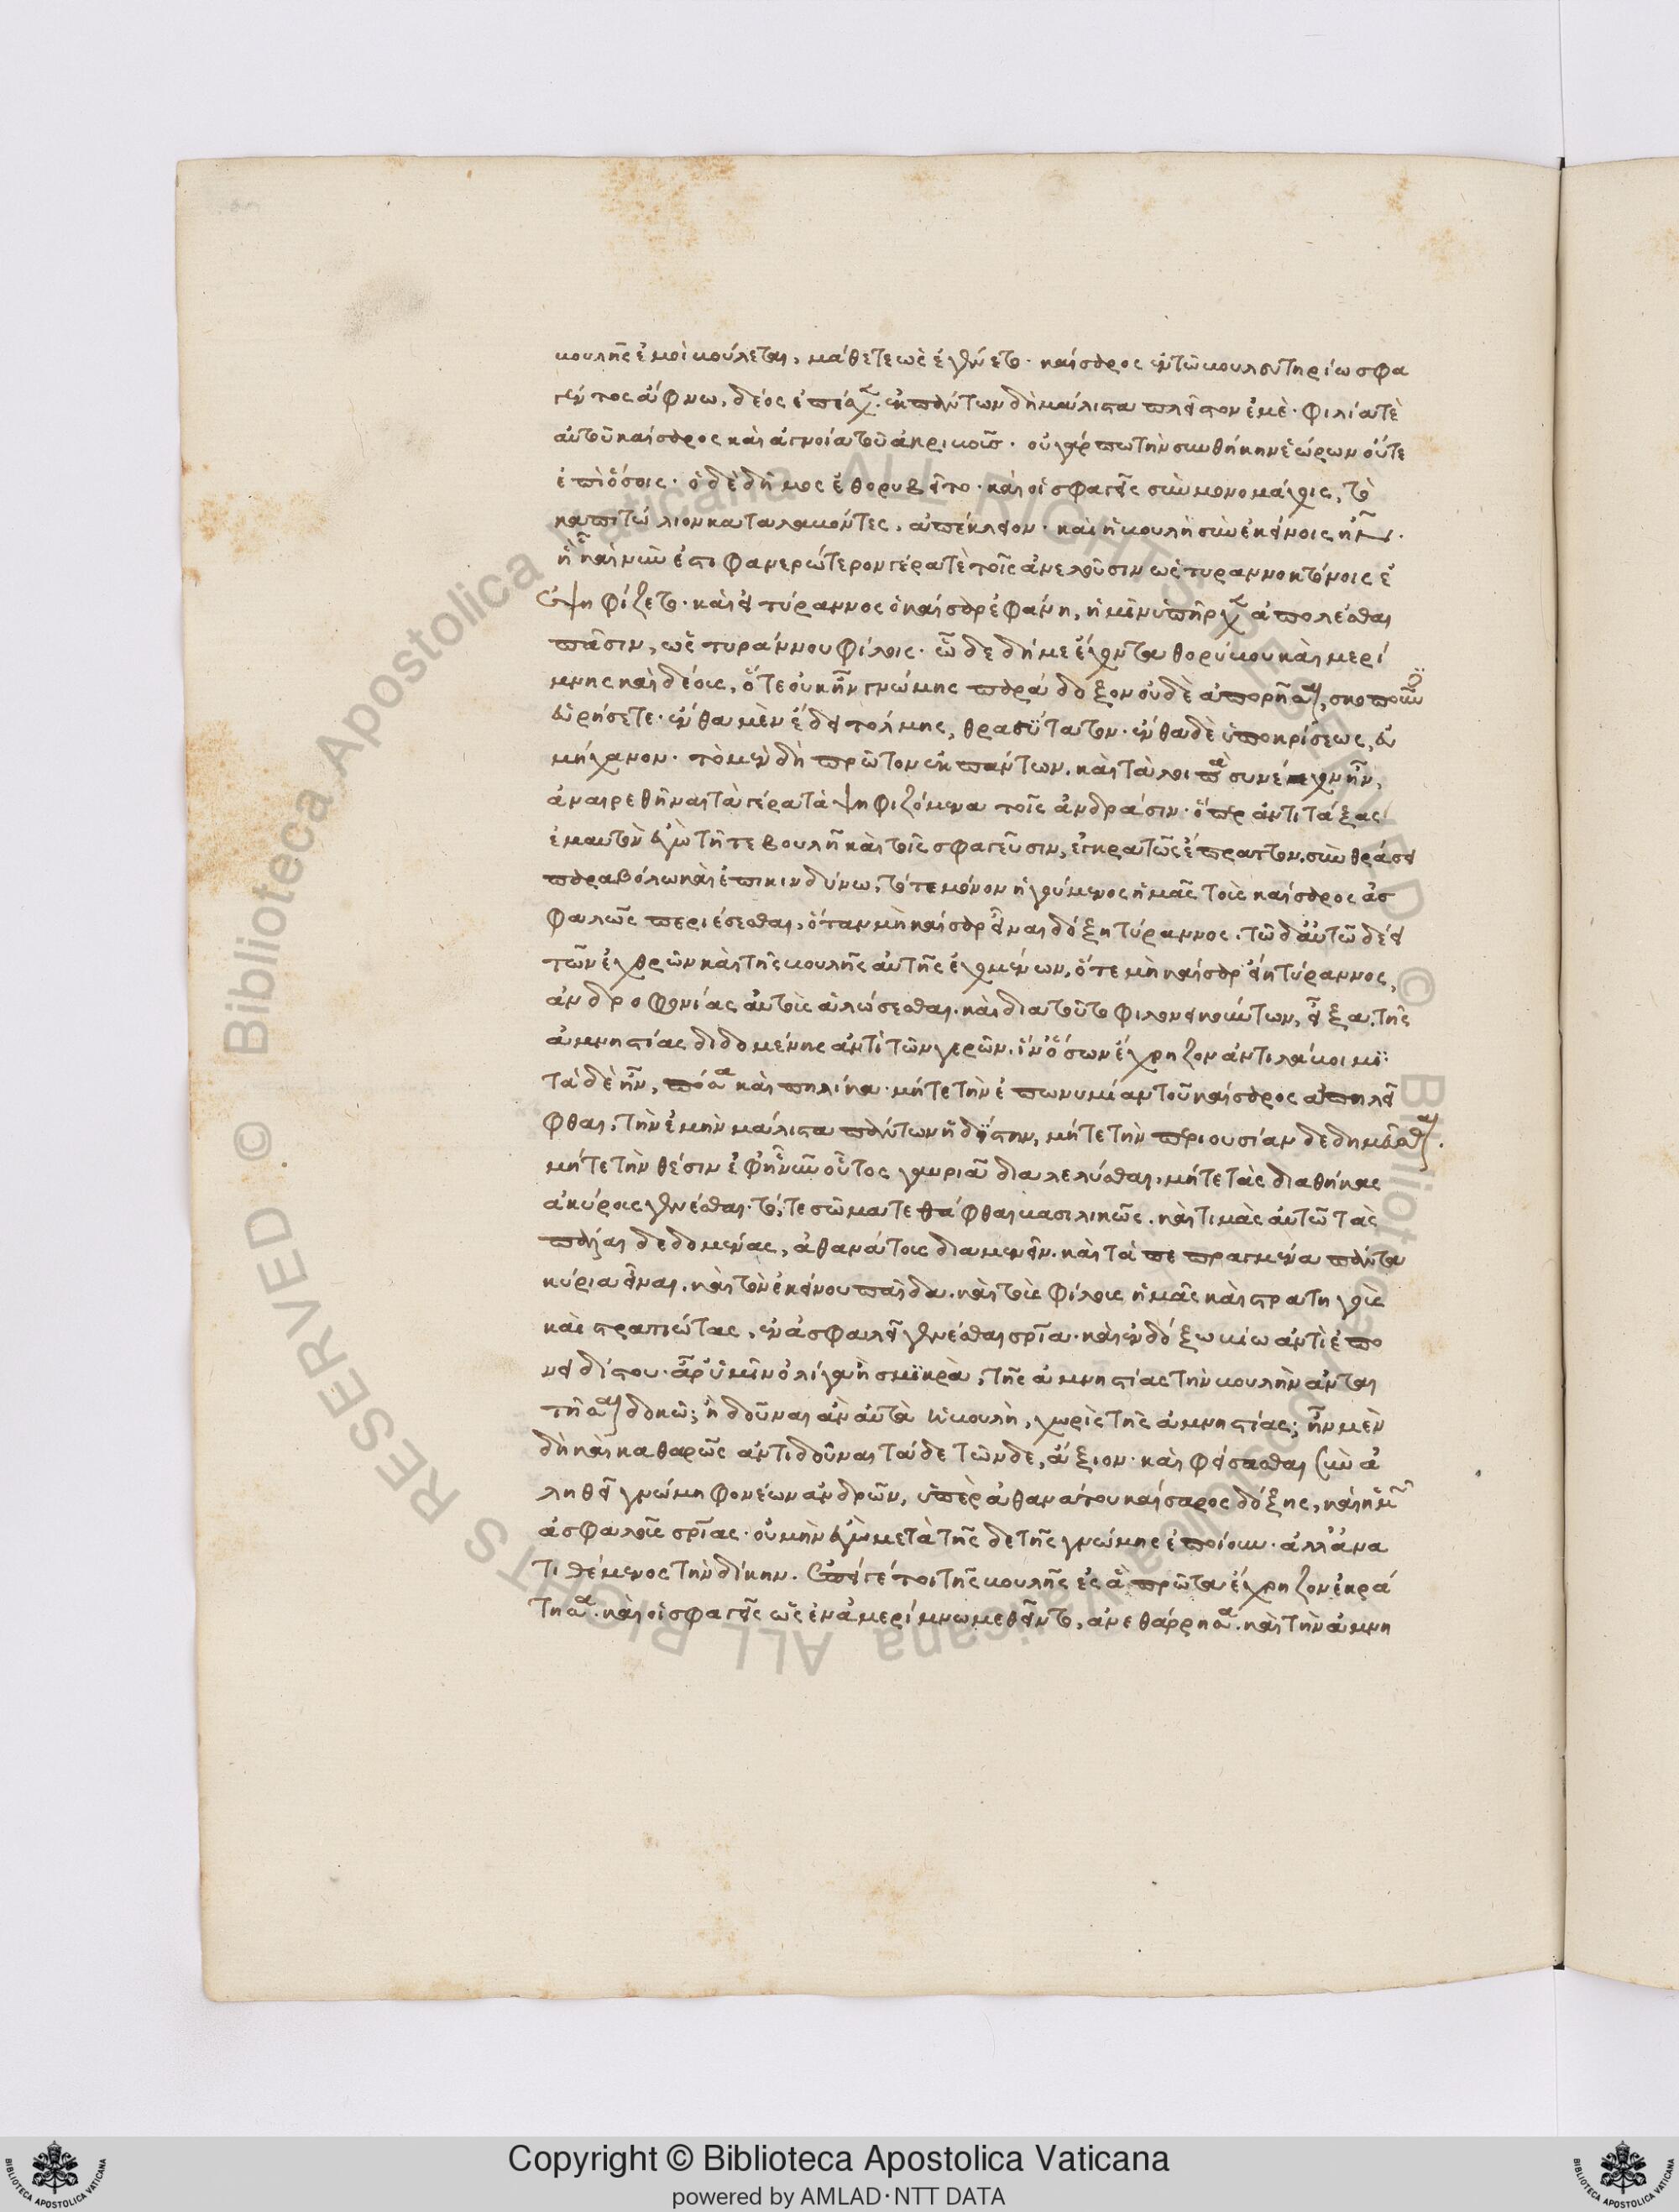 βουλῆς ἐμοὶ βούλεται, μάθετε ὡς ἐγίγνετο. καίσαρος ἐν τῶ βουλευτηρίω σφα
γέντος ἄφνω, δέος ἐπέσχεν. ἐκ πάντων δὴ μάλιστα πλεῖστον ἐμὲ. φιλία τὲ
αὐτοῦ καίσαρος καὶ ἀγνοία τοῦ ἀκριβοῦς. οὐ γάρ πω τὴν συνθήκην ἑώρων οὔτε
ἐπὶ ὅσοις. ὁ δὲ δῆμος ἐθορυβεῖτο. καὶ οἱ σφαγεῖς σὺν μονομάχοις, τὸ
καπιτώλιον καταλαβόντες, ἀπέκλειον. καὶ ἡ βουλὴ σὺν ἐκείνοις ἦν.
ἢ καὶ νῦν ἐστι φανερώτερον γέρα τὲ τοῖς ἀνελοῦσιν ὡς τυραννοκτόνοις ἐ
ψηφίζετο. καὶ εἰ τύραννος ὁ καῖσαρ ἐφάνη, ἡμῖν ὑπῆρχεν ἀπολέσθαι
πᾶσιν, ὡς τυράννου φίλοις. ὧδε δή με ἔχοντα θορύβου καὶ μερί
μνης καὶ δέους, ὅτε οὐκ ἦν γνώμης παράδοξον οὐδὲ ἀπορῆσαι, σκοποῦν
εὑρήσετε. ἔνθα μὲν ἔδει τόλμης, θρασύτατον. ἔνθα δὲ ὑποκρίσεως, εὐ
μήχανον. τὸ μὲν δὴ πρῶτον ἐκ πάντων. καὶ τὰ λοιπὰ συνέχον ἦν,
ἀναιρεθῆναι τὰ γέρα τὰ ψηφιζόμενα τοῖς ἀνδράσιν. ὅπερ ἀντιτάξας
ἐμαυτὸν ἐγὼ τῆ τε βουλῆ καὶ τοῖς σφαγεῦσιν, ἐγκρατῶς ἔπραττον, σὺν θράσει
παραβόλω καὶ ἐπικινδύνω, τότε μόνον ἡγούμενος ἡμᾶς τοὺς καίσαρος ἀσ
φαλῶς περιέσεσθαι, ὅταν μὴ καῖσαρ εἶναι δόξη τύραννος. τῶ δ' αὐτῶ δέει
τῶν ἐχθρῶν καὶ τῆς βουλῆς αὐτῆς ἐχομένων, ὅτε μὴ καῖσαρ εἴη τύραννος,
ἀνδροφονίας αὐτοὺς ἁλώσεσθαι. καὶ διὰ τοῦτο φιλονεικούντων, εἶξα τῆς
ἀμνηστίας διδομένης ἀντὶ τῶν γερῶν. ἵν' ὅσων ἔχρηζον ἀντιλάβοιμι
τὰ δὲ ἦν, πόσα καὶ πηλίκα. μήτε τὴν ἐπωνυμίαν τοῦ καίσαρος ἀπηλεῖ
φθαι, τὴν ἐμὴν μάλιστα πάντων ἡδίστην, μήτε τὴν περιουσίαν δεδημεῦσθαι.
μήτε τὴν θέσιν ἐφ' ἧ νῦν οὗτος γαυριᾶ διαλελύσθαι. μήτε τὰς διαθήκας
ἀκύρους γενέσθαι. τό, τε σῶμα τεθάφθαι βασιλικῶς. καὶ τιμὰς αὐτῶ τὰς
πάλαι δεδομένας, ἀθανάτους διαμένειν. καὶ τὰ πεπραγμένα πάντα
κύρια εἶναι. καὶ τὸν ἐκείνου παῖδα. καὶ τοὺς φίλους ἡμᾶς καὶ στρατηγοὺς
καὶ στρατιώτας, ἐν ἀσφαλεῖ γενέσθαι σωτηρία. καὶ ἐν δόξω βίω ἀντὶ ἐπο
νειδίστου. ἆρ' ὑμῖν ὀλίγα ἢ σμικρὰ, τῆς ἀμνηστίας τὴν βουλὴν ἀνται
τῆσαι δοκῶ; ἢ δοῦναι ἂν αὐτὰ ἡ βουλὴ, χωρὶς τῆς ἀμνηστίας; ἦν μὲν
δὴ καὶ καθαρῶς ἀντιδοῦναι τάδε τῶνδε, ἄξιον. καὶ φείσασθαι σὺν ἀ
ληθεῖ γνώμη φονέων ἀνδρῶν, ὑπὲρ ἀθανάτου καίσαρος δόξης, καὶ ἡμῶν
ἀσφαλοῦς σωτηρίας. οὐ μὴν ἐγὼ μετὰ τῆς δε τῆς γνώμης ἐποίουν. ἀλλ' ἀνα
τιθέμενος τὴν δίκην. ἐπεί γέ τοι τῆς βουλῆς ἐς ἃ πρῶτα ἔχρηζον ἐκρά
τησα. καὶ οἱ σφαγεῖς ὡς ἐν ἀμερίμνω μεθεῖντο, ἀνεθάρρησα. καὶ τὴν ἀμνη
Copyright © Biblioteca Apostolica Vaticana
powered by AMLAD·NTT DATA